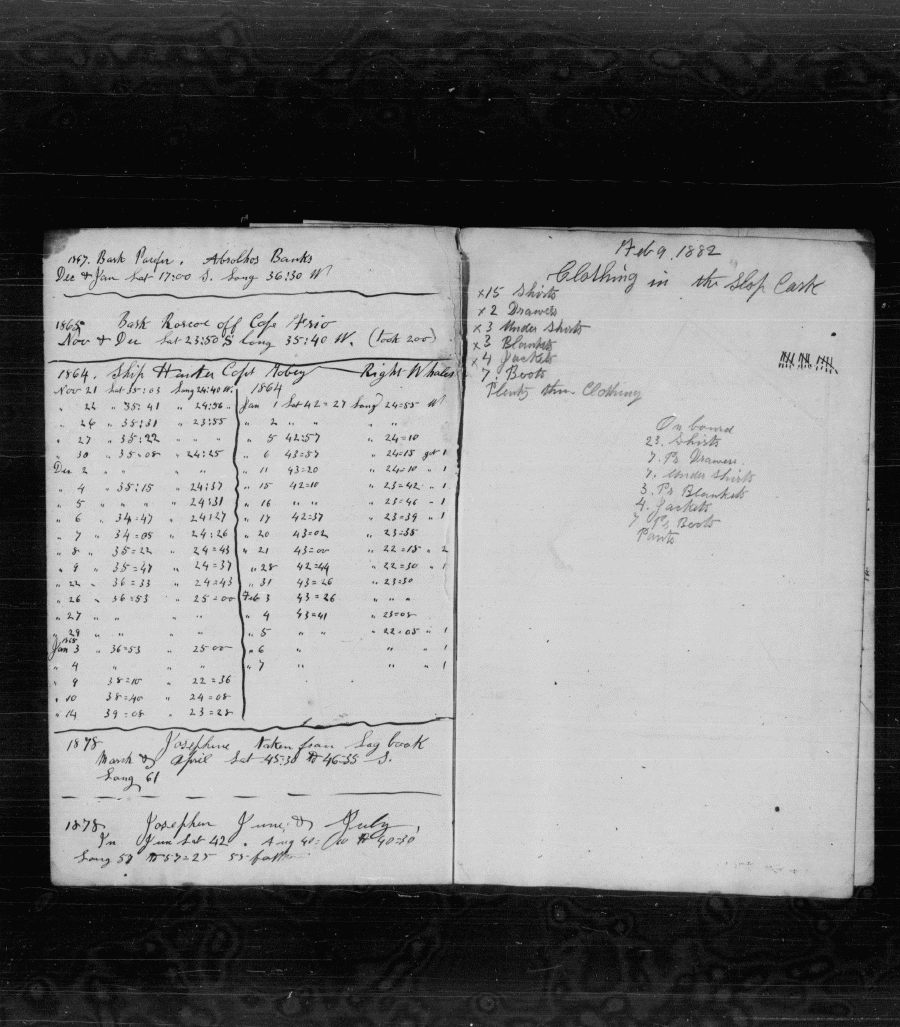 1867. Bark Pacific, Abrolhos Banks
Dec & Jan Lat 17:00 S. Long 36:30 W
1865 Bark Roscoe off Cape Frio
Nov & Dec Lat 23:50 S Long 35:40 W. (took 200)
1864, Ship Hunter Capt Robey Right Whales
Nov 21 Lat 35:03 Long 24:40 W.
" 22 " 35:41 " 24:36 "
" 26 " 35:31 " 23:55
" 27 " 35:22 " "
" 30 " 35=08 " 24:25
Dec 2 " " " "
" 4 " 35:15 " 24:37
" 5 " " " " 24:31
" 6 " 34=47 " 24:27
" 7 " 34=05 " 24:26
" 8 " 35=22 " 24=43
" 9 " 35=47 " 24=37
" 22 " 36=33 " 24=43
" 26 " 36=53 " 25=00
" 27 " " " "
" 29 " " " "
1865
Jan 3 " 36=53 " 25 00
" 4 " " "
" 9 38=10 " 22=36
" 10 38=40 " 24=08
" 14 39=08 " 23=28
1864
Jan 1 Lat 42=27 Long 24=55 W
" 2 " " " "
" 5 42:57 " 24=10
" 6 43=57 " 24=15 got 1
" 11 43=20 " 24=10 " 1
" 15 42=10 " 23=42 " 1
" 16 " " " 23=46 " 1
" 17 42=37 " 23=39 " 1
" 20 43=02 " 23=35
" 21 43=00 " 22=15 " 2
" 28 42=44 " 22=30 " 1
" 31 43=26 " 23=30
Feb 3 43=26 " " "
" 4 43=41 " 23=08
" 5 " " " 22=05 " 1
" 6 " " " 1
" 7 " " " 1
1878 Josephine taken from Log book
March & April Lat 45:30 to 46-35 S.
Long 61
1878 Josephine June, & July
In June Lat 42, Aug 40= to 40=30
Long 57 to 57=25
Feb 9, 1882
Clothing in the Slop Cask
x 15 Shirts
x 2 Drawers
x 3 Under Shirts
x 3 Blankets
x 4 Jackets
7. Boots
Plenty thin Clothing
On board
23. Shirts
7. Pr Drawers.
7. Under Shirts
3. Pr Blankets
4. Jackets
7. Pr Boots
Pants